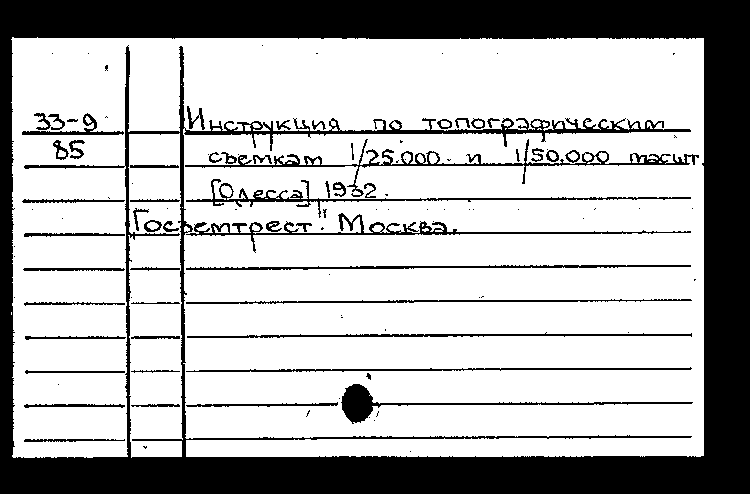 33-9 Инструкция по топографическим
85 съемкам 1/25.000 и 1/50.000 масшт.
[Одесса], 1932.
Госземтрест". Москва.